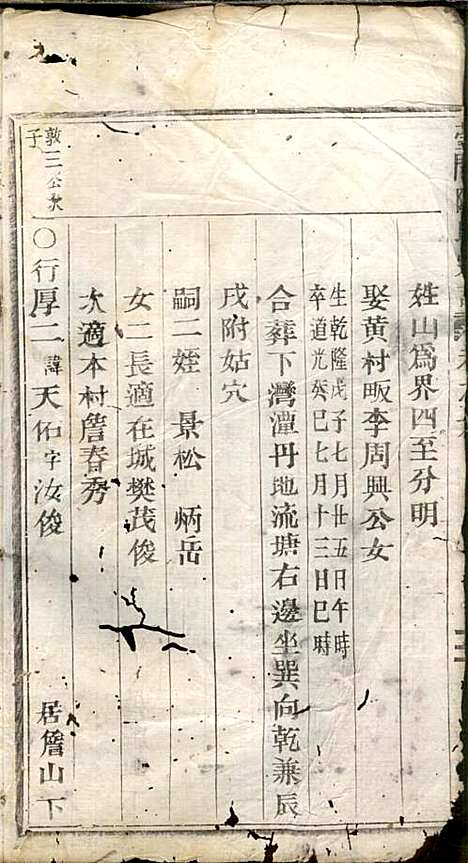 姓山為界四至分明
娶黄村畈李周興公女
生乾隆戊子七月廿五日午時
卒道光癸巳七月十三日巳時
合葬下灣潭丹地流塘右邊坐巽向乾兼辰
戌附姑穴
嗣二姪 景松 炳岳
女二長適在城樊茂俊
次適本村詹春秀
敦三公次子
〇行厚二諱天佑字汝俊 居詹山下